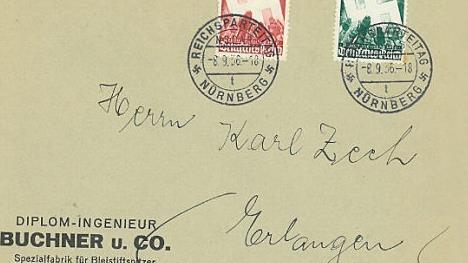 REICHSPARTEITAG
-8.9.36-18
t
NÜRNBERG
Deutsches Reich
-8.9.36-18
t
NÜRNBERG
Deutsches Reich
Herrn Karl Zech
Erlangen
DIPLOM-INGENIEUR
BUCHNER U. CO.
Spezialfabrik für Bleistiftspitzer